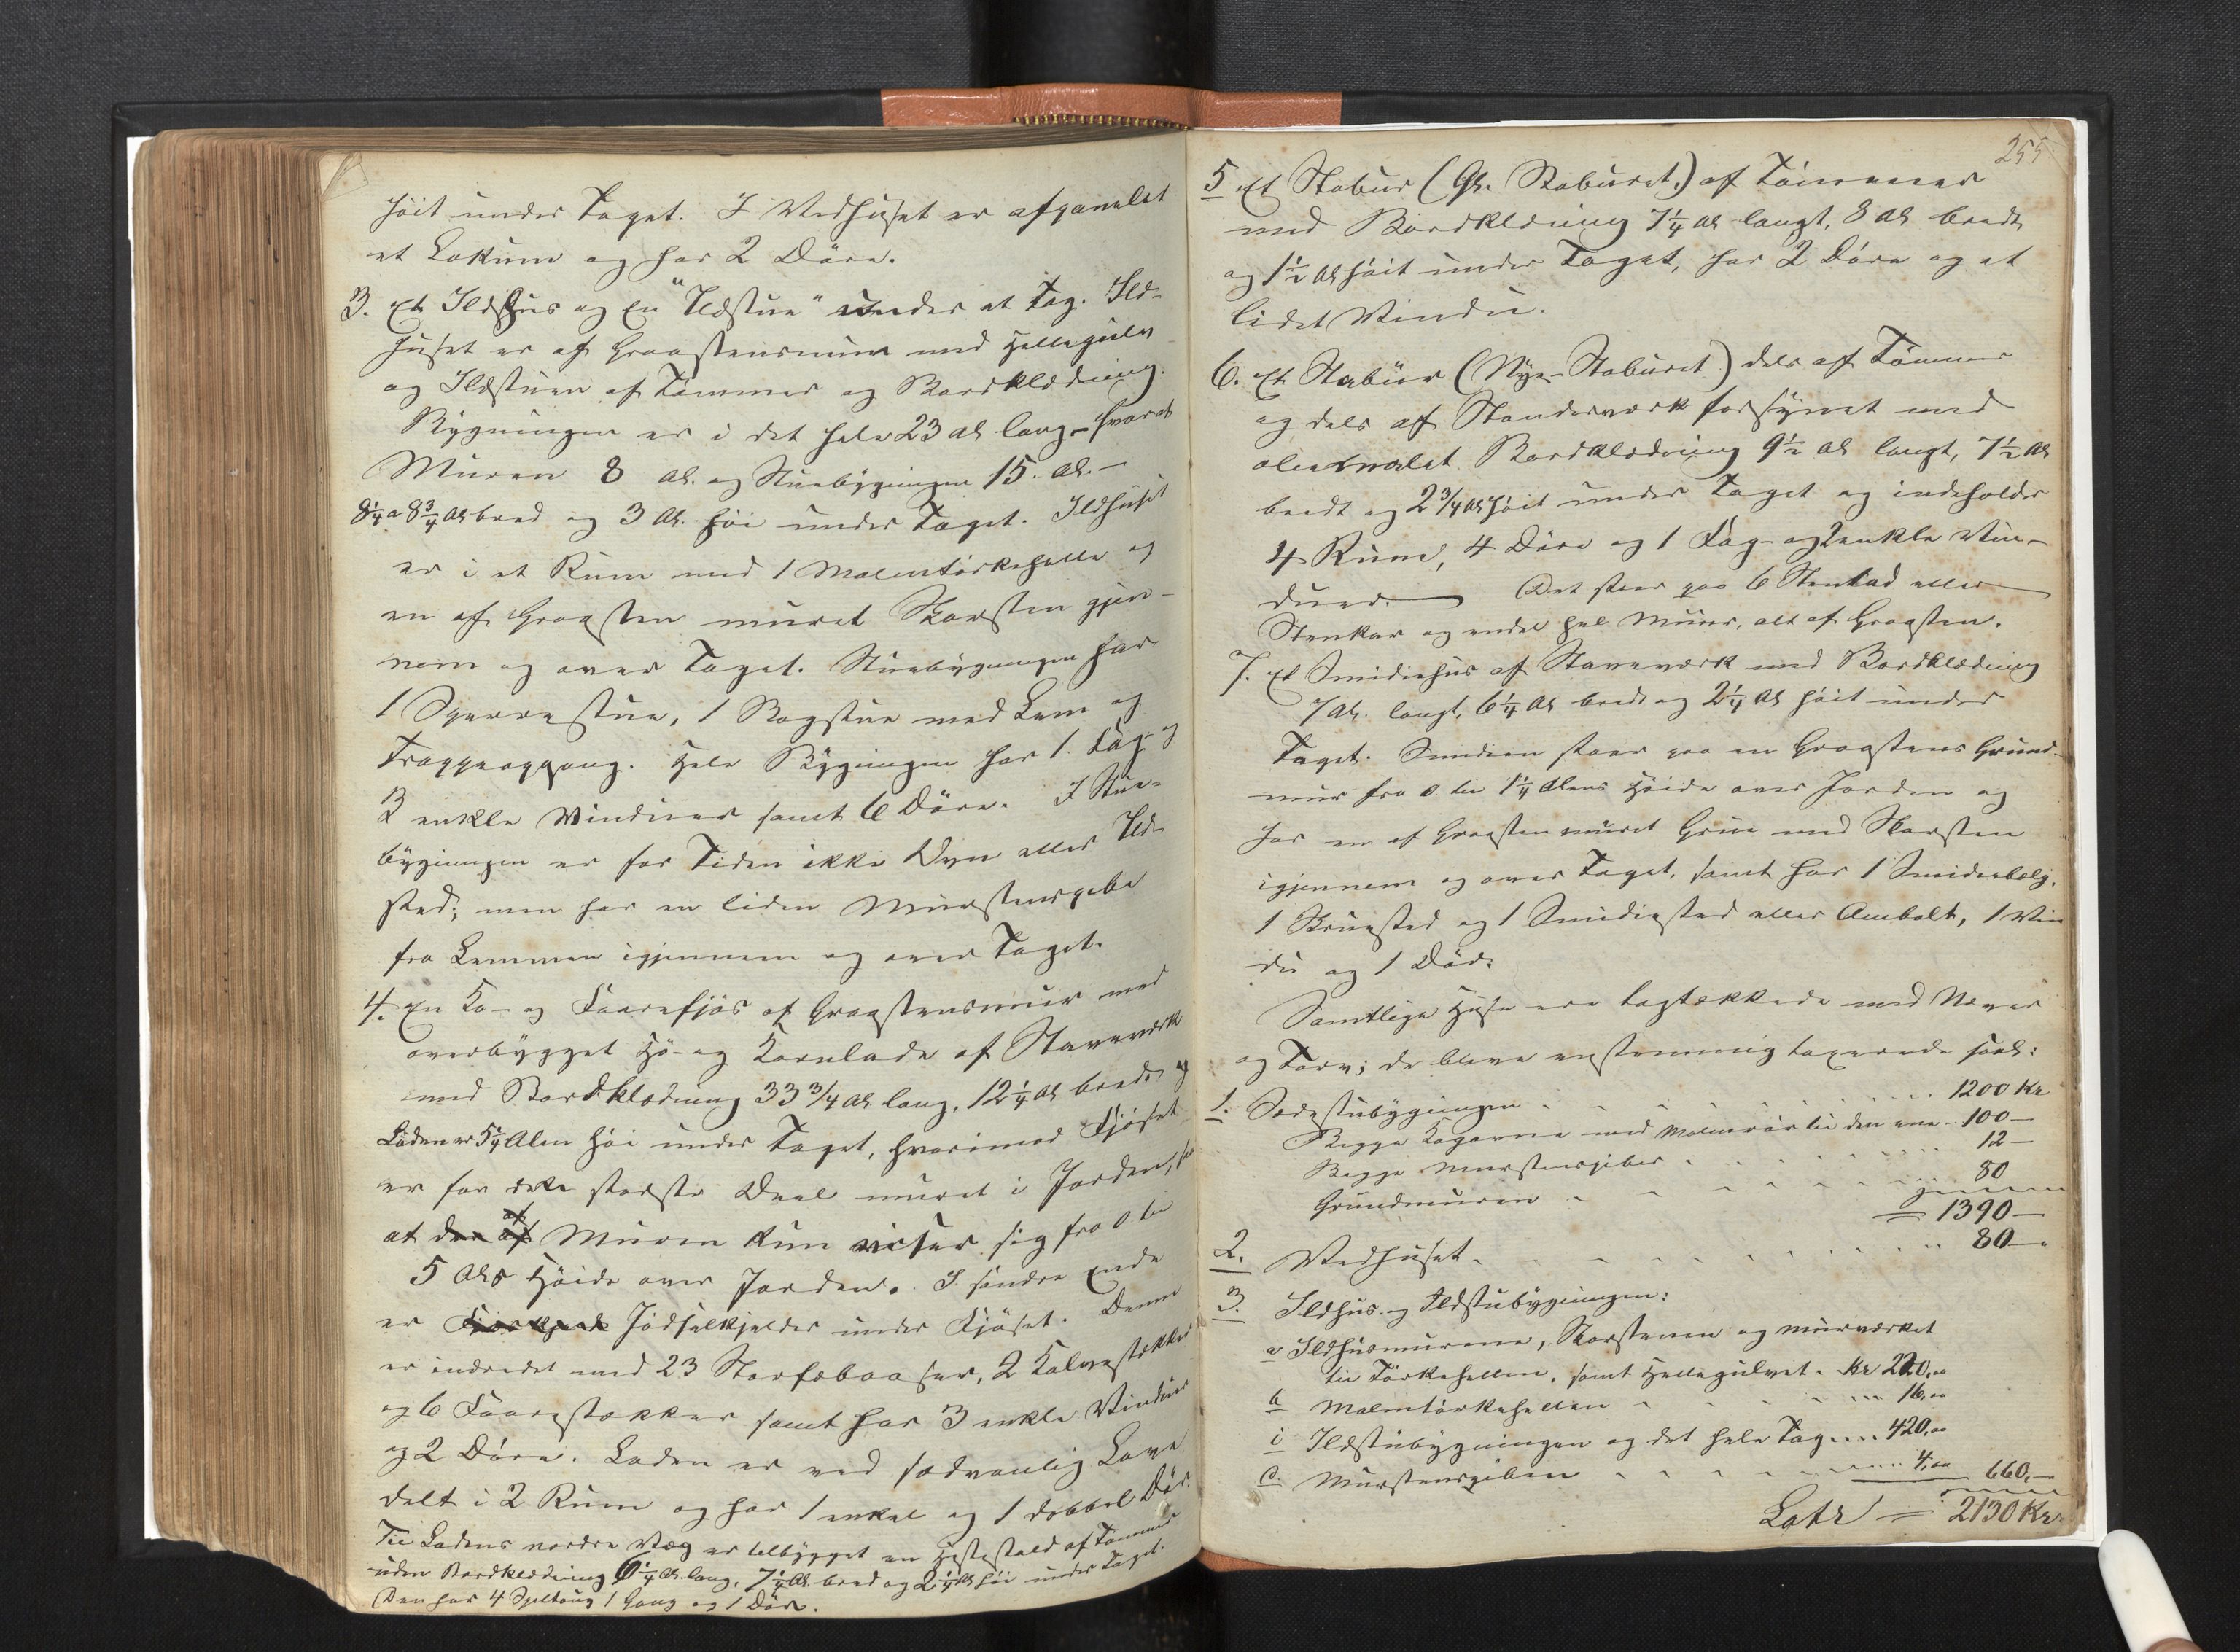 høit under Taget. I Vedhuset er afpanelet
et Lokum og har 2 Döre.
3. Et Ildhus og en "Ildstue" under et Tag. Ild-
huset er af Graastensmur med Hellegulv
og Ildstuen af Tømmer og Bordklædning.
Bygningen er i det hele 23 Al. lang – hvoraf
Muren 8 Al. og Stuebygningen 15. Al. –
8¼ a 8¾ Al. bred og 3 Al. høi under Taget. Ildhuset
er i et Rum med 1 Malmtørkehelle og
en af Graasten muret Skorsten gjen-
nem og over Taget. Stuebygningen har
1 Sperrestue, 1 Bogstue med Lem og
Trappeopgang. Hele Bygningen har 1. Fag- og
2 enkle Vinduer samt 6 Döre. I Stue-
bygningen er for Tiden ikke Ovn eller Ild-
sted; men har en liden Murstenspibe
fra Lemmen igjennem og over Taget.
4. En Ko- og Faarefjøs af Graastensmur med
overbygget Hø- og Kornlade af Staveværk
med Bordklædning 33¾ Al. lang, 12¼ Al. bred, og
Laden er 5¼ Alen høi under Taget, hvorimod Fjøset
er for det største Deel muret i Jorden, saa
at den af Muren kun viser sig fra 0 til
5 Al. Høide over Jorden. I søndre Ende
er Jødselkjelder under Fjøset. Denne
er indredet med 23 Storfæbaaser, 2 Kalvestækker
og 6 Faarestækker samt har 3 enkle Vinduer
og 2 Döre. Laden er ved sædvanlig Lave
delt i 2 Rum og har 1 enkel og 1 dobbel Dör.
Til Ladens nordre Væg er tilbygget en Hestestald af Tømmer
uden Bordklædning 6¼ Al. lang, 7¼ Al. bred og 2¼ Al. høi under Taget.
Den har 4 Spiltoug 1 Gang og 1 Dör.
255
5 Et Stabur (Gl. Staburet.) af Tømmer
med Bordklædning 7¼ Al. langt, 8 Al. bredt
og 1½ Al. høit under Taget, har 2 Döre og et
lidet Vindu.
6. Et Stabur (Nye-Staburet) dels af Tømmer
og dels af Standerværk forsynet med
oliemalet Bordklædning 9½ Al. langt, 7½ Al.
bredt og 2¾ Al. høit under Taget og indeholder
4 Rum, 4 Döre og 1 Fag- og 2 enkle Vin-
duer. – Det staar paa 6 Stenlad eller
Stenkar og endel hel Muur, alt af Graasten.
7. Et Smidiehus af Staveværk med Bordklædning
7 Al. langt, 6¼ Al. bredt og 2¼ Al. høit under
Taget. Smidien staar paa en Graastens Grund-
mur fra 0 til 1¼ Alens Høide over Jorden og
har en af Graasten muret Grue med Skorsten
igjennem og over Taget, samt har 1 Smidiebælg,
1 Skruested og 1 Smidiested eller Ambolt, 1 Vin
du og 1 Dör.
Samtlige Huse ere tagtækkede med Næver
og Torv; de bleve enstemmig taxerede saal:
1. Sædestubygningen . . . . . 1200 Kr
Begge Kogovne med Malmrør til den ene . . 100 –
Begge Murstenspiber . . . . 12 –
Grundmuren . . . . . 80
= 1390 –
2. Vedhuset . . . . . 80 –
3. Ildhus- og Ildstubygningen:
a Ildhusmurene, Skorstenen og murværket
til Tørkehellen, samt Hellegulvet . Kr 220,00
b Malmtørkehellen . . . . 16,00
i Ildstubygningen og det hele Tag . . . 420,00
c. Murstenspiben . . . . 4,00 660, –
Latr = 2130 Kr.